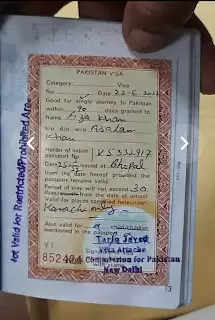 PAKISTAN VISA
Category Visa
No. Date 22-6-
Good for single journey to Pakistan
within 90 days granted to
Name Aiza Khan
s/o d/o w/o Asalam
Khan
Holder of Indian
passport No. K5332917
Date issued at Bhopal
from the date hereof provided the
passport remains valid.
Period of stay will not exceed 30
from the date of arrival
Valid for places
Karachi only
Also valid for
mentioned in the passport
Tariq Javed
VI Visa Attache
852404 for Pakistan
New Delhi
Not Valid for Restricted/Prohibited Are